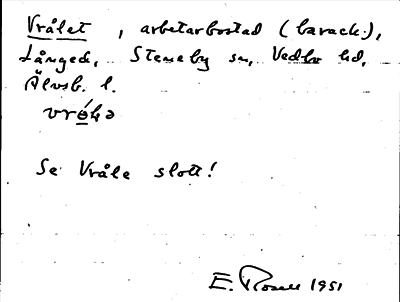 Vrålet, arbetarbostad (barack.),
Långed, Steneby sn, Vedbo hd,
Älvsb. l.
Se Vråle slott!
E. Rosell 1951